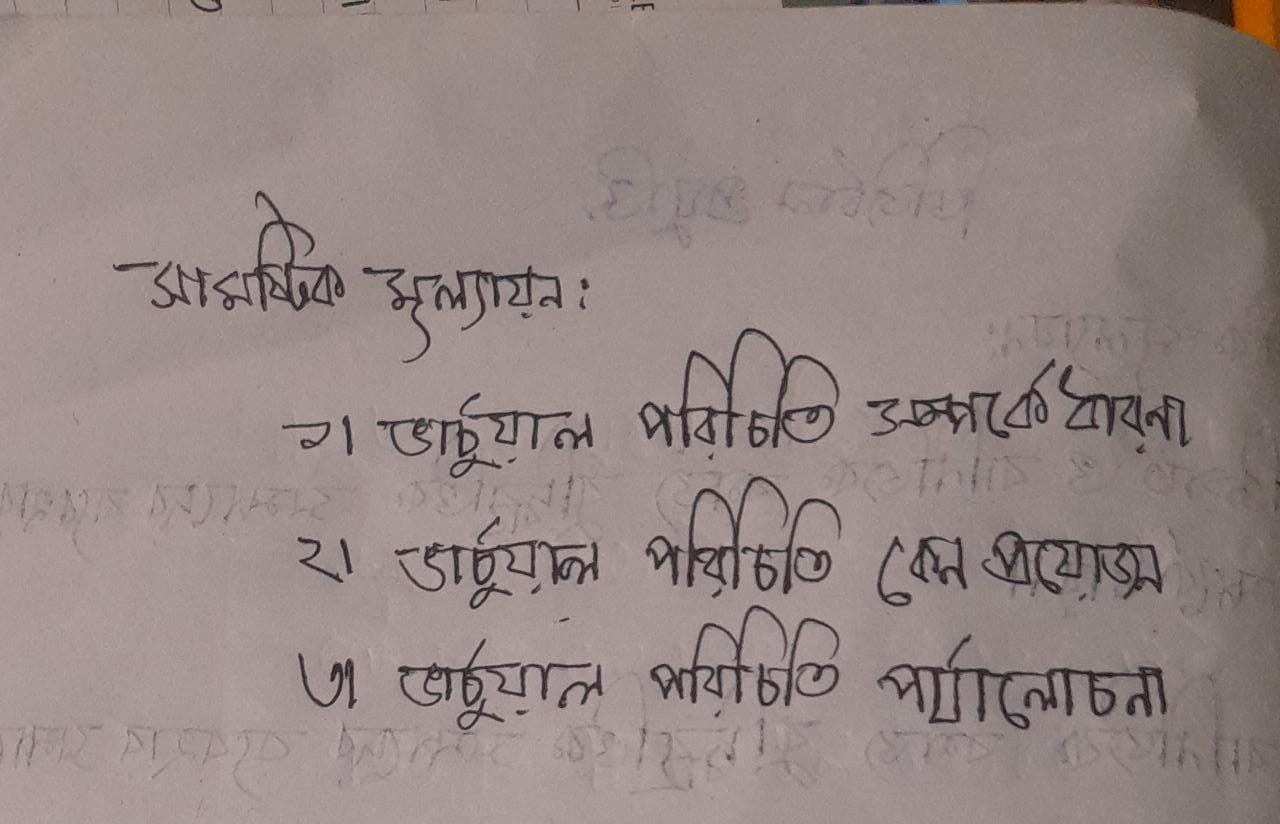 সামষ্টিক মূল্যায়ন:
১। ভার্চুয়াল পরিচিতি সম্পর্কে ধারনা
২। ভার্চুয়াল পরিচিতি কেন প্রয়োজন
৩। ভার্চুয়াল পরিচিতি পর্যালোচনা